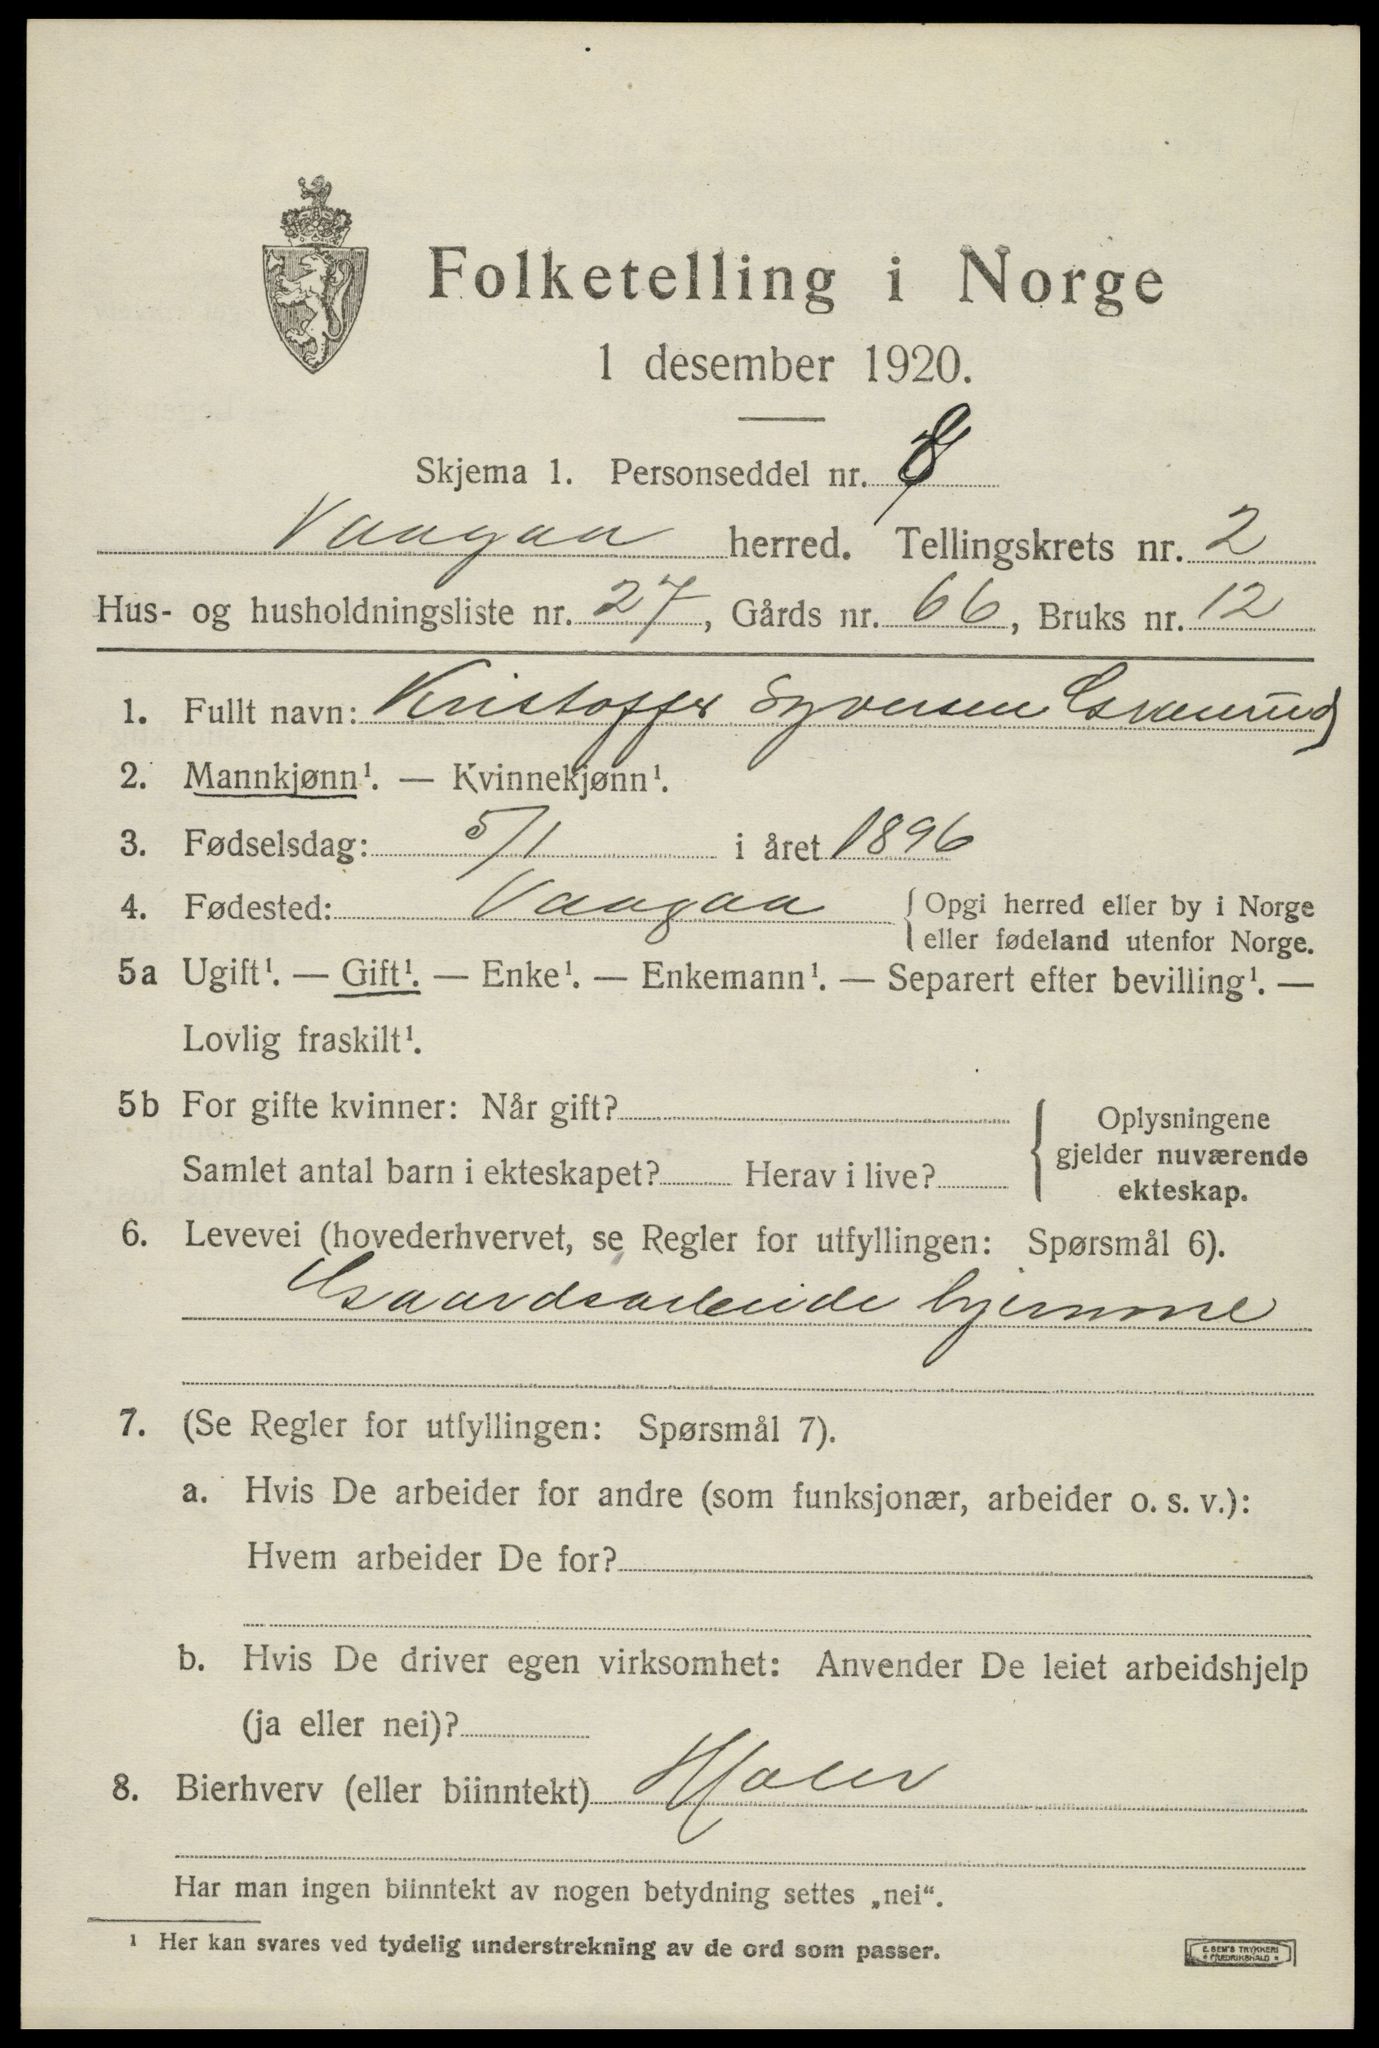 Folketelling i Norge
1 desember 1920.
Skjema 1. Personseddel nr. 8
Vaagaa herred. Tellingskrets nr. 2
Hus- og husholdningsliste nr. 27, Gårds nr. 66, Bruks nr. 12
1. Fullt navn: Kristoffer Syversen
2. Mannkjønn¹. — Kvinnekjønn¹.
3. Fødselsdag: 5/1 i året 1896
4. Fødested: Vaagaa { Opgi herred eller by i Norge
eller fødeland utenfor Norge.
5a Ugift¹. — Gift¹. — Enke¹. — Enkemann¹. — Separert efter bevilling¹. —
Lovlig fraskilt¹.
5b For gifte kvinner: Når gift?
Samlet antal barn i ekteskapet? Herav i live?
{ Oplysningene
gjelder nuværende
ekteskap.
6. Levevei (hovederhvervet, se Regler for utfyllingen: Spørsmål 6).
Gaardsarbeide hjemme
7. (Se Regler for utfyllingen: Spørsmål 7).
a. Hvis De arbeider for andre (som funksjonær, arbeider o. s. v.):
Hvem arbeider De for?
b. Hvis De driver egen virksomhet: Anvender De leiet arbeidshjelp
(ja eller nei)?
8. Bierhverv (eller biinntekt)
Har man ingen biinntekt av nogen betydning settes „nei“.
¹ Her kan svares ved tydelig understrekning av de ord som passer.
E. SEM'S TRYKKERI
* FREDRIKSHALD *